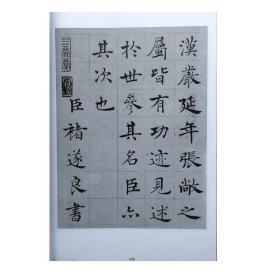 漢嚴延年張敞之
屬皆有功迹見述
於世參其名臣亦
其次也
臣褚遂良書